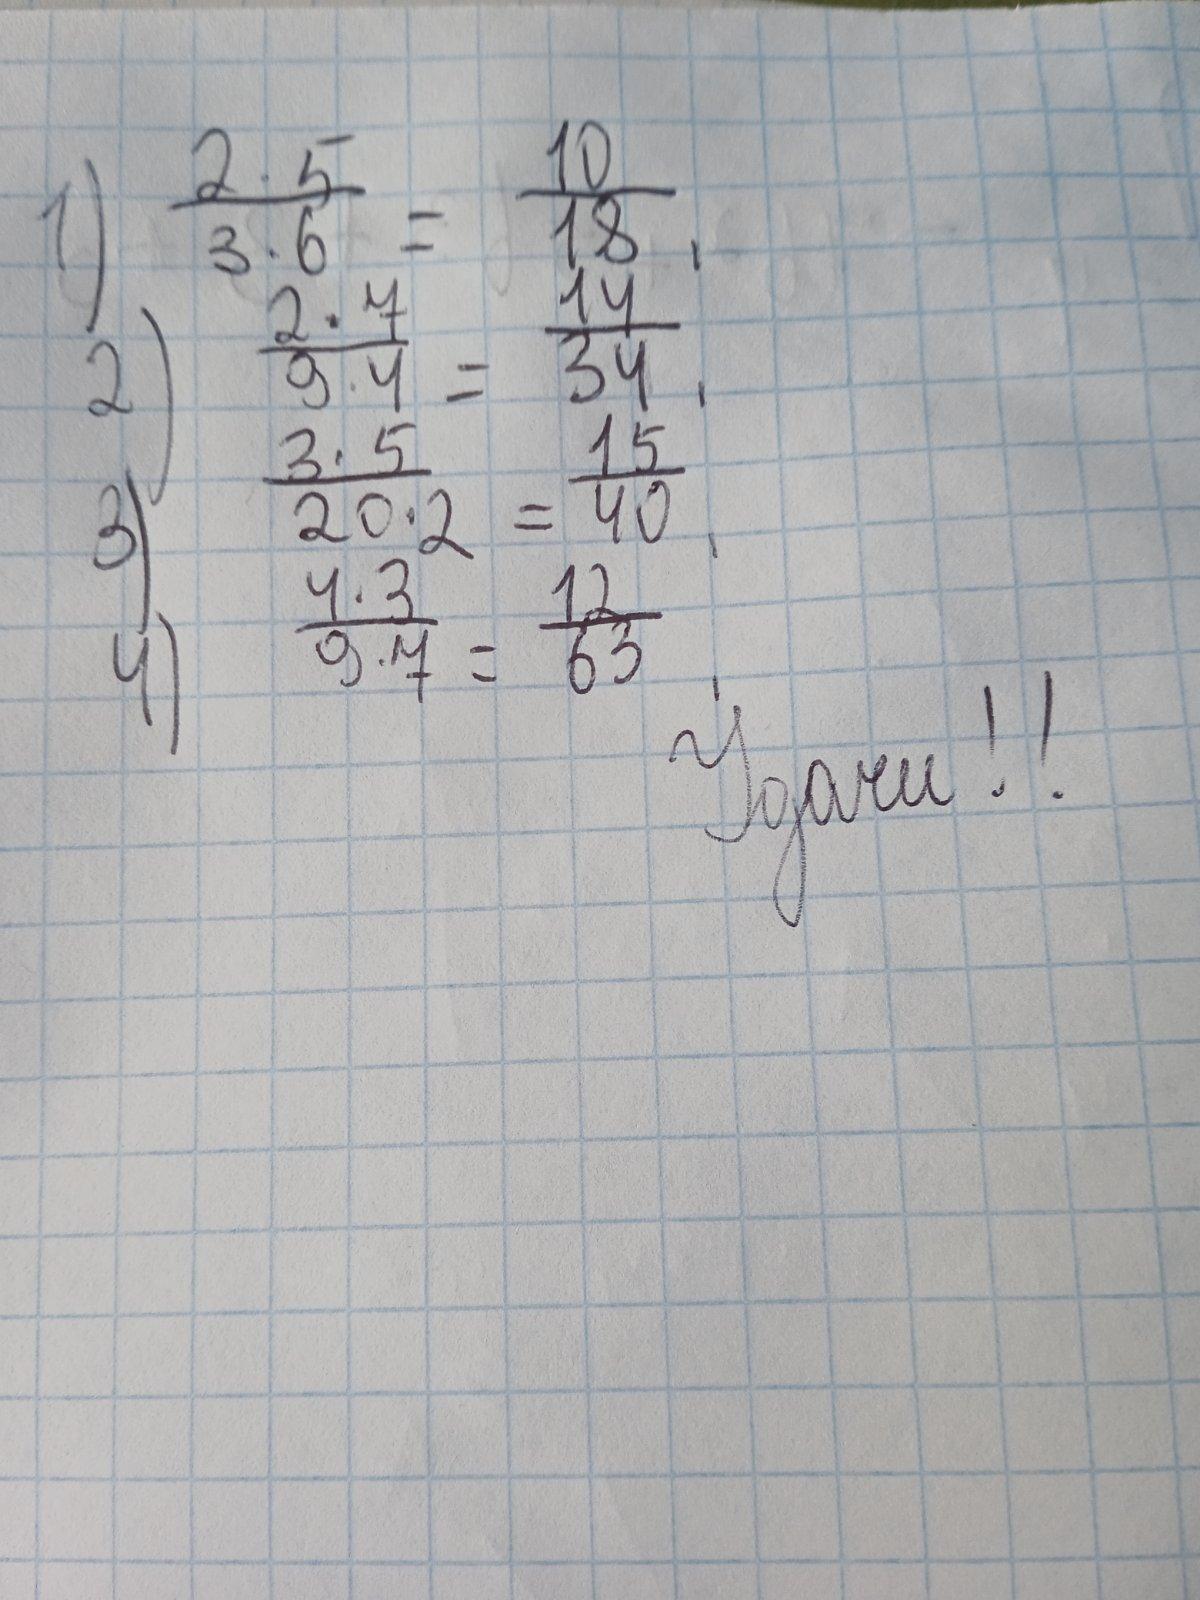 1) 2·5/3·6 = 10/18,
2) 2·7/9·4 = 14/34,
3) 3·5/20·2 = 15/40,
4) 4·3/9·7 = 12/63,
Удачи!!